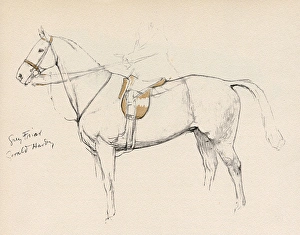 Grey Friar
Gerald Hardy